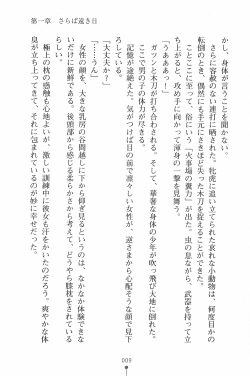 第一章　さらば遠き日
かし、身体が言うことを聞かない。
さらに容赦のない連打に晒された。牝虎に追い立てられた哀れな小動物は、何度目かの
転倒のとき、偶然にも手元にさきほど失った木刀を捉えることができた。
ことここに至って、俗にいう「火事場の糞力」が発動した。虫の息ながら、武器を持っ
た少年は、攻め手に向かって渾身の一撃を見舞う。
「うああっ！」
ガツンと木刀が打ち合わさる。それと同時に、華奢な身体の少年が吹っ飛び大地に倒れ
た。ここで男の子の体力が尽きた。
記憶が途絶えた。気がつけば目の前で凛々しい女性が、逆さまから心配そうな顔で見下
ろしている。
「大丈夫か？」
「……うん」
女性の顔を、大きな乳房の谷間越しに下から仰ぎ見るというのは、なかなか体験できな
いだけに新鮮である。後頭部から感じる柔らかさから考えて、どうやら膝枕をされている
ようだ。
極上の枕の感触も心地よいが、激しい訓練中に彼女も汗をかいたのだろう。爽やかな体
臭が立ち上ってきて、それに包まれているのが妙に幸せだった。
009